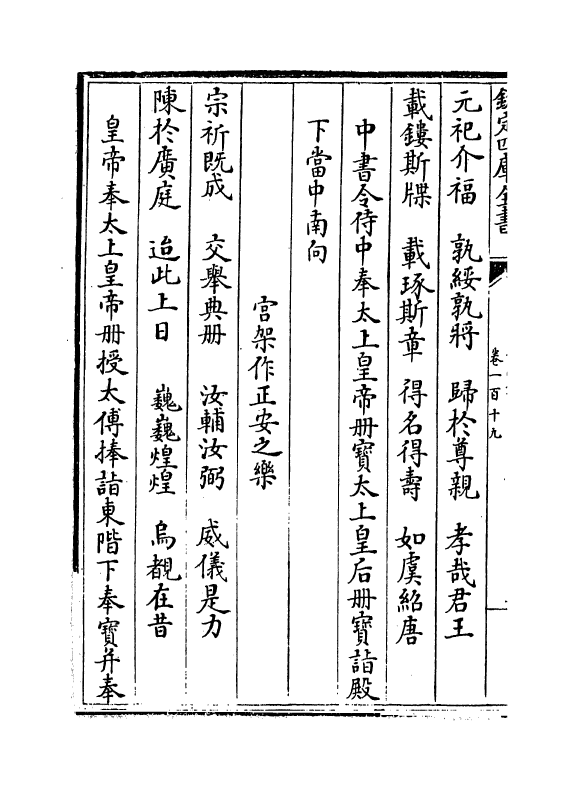 欽定四庫全書
卷一百十九
元祀介福 孰綏孰將 歸於尊親 孝哉君王
載鏤斯牒 載琢斯章 得名得壽 如虞紹唐
中書令侍中奉太上皇帝册寶太上皇后册寶詣殿
下當中南向
宫架作正安之樂
宗祈既成 交舉典册 汝輔汝弼 威儀是力
陳於廣庭 迨此上日 巍巍煌煌 烏覩在昔
皇帝奉太上皇帝册授太傅捧詣東階下奉寶并奉